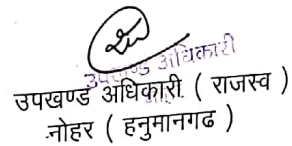 उपखण्ड अधिकारी
उपखण्ड अधिकारी ( राजस्व )
नोहर ( हनुमानगढ )